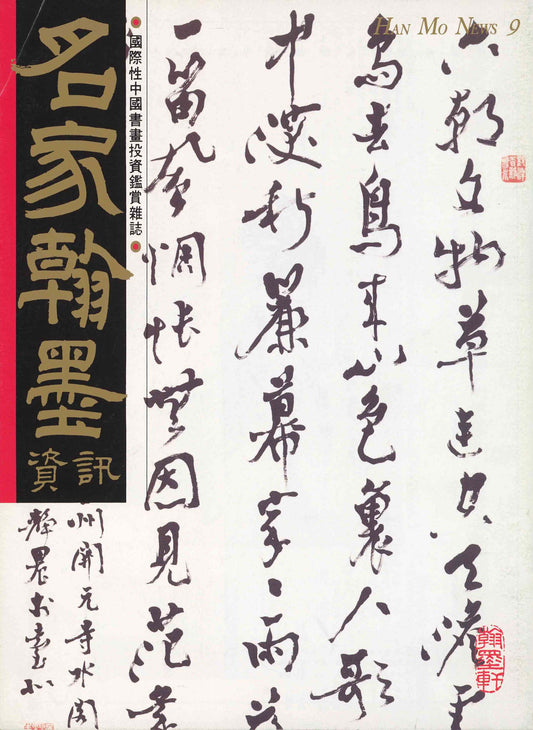 HAN MO NEWS 9
名家翰墨
資訊
國際性中國書畫投資鑑賞雜誌
六朝文物草連空天澹雲
鳥去鳥来山色裏人歌
中深秋簾幕家〻雨落
一笛風惆悵無因見范蠡
州開元寺水閣
翰墨軒